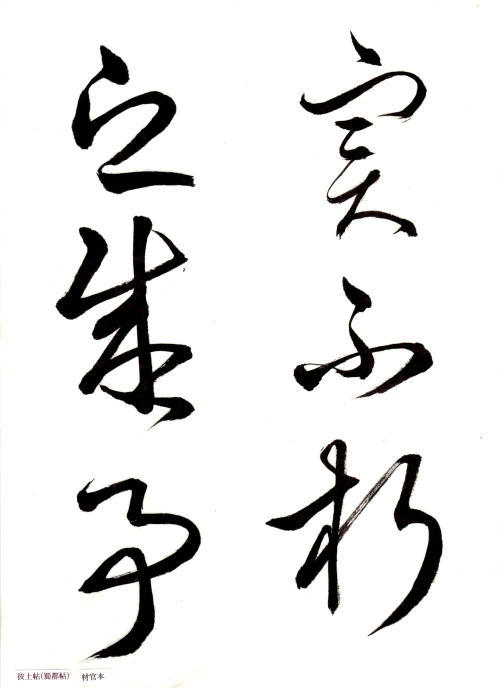 實不朽
之盛事
彼土帖(蜀都帖) 材官本